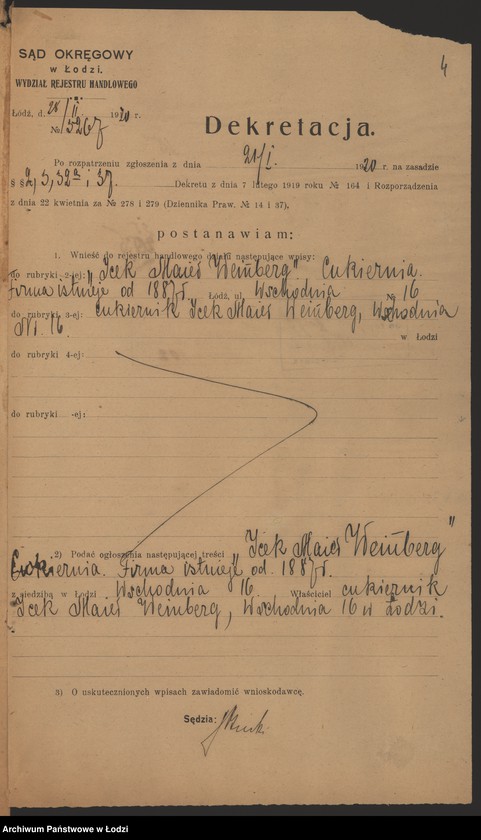 4
SĄD OKRĘGOWY
w Łodzi.
WYDZIAŁ REJESTRU HANDLOWEGO
Łódź, d. 28/II 1920 r.
№ 5267
Dekretacja.
Po rozpatrzeniu zgłoszenia z dnia 21/I. 1920 r. na zasadzie
§ § 2, 3, 32a i 37. Dekretu z dnia 7 lutego 1919 roku № 164 i Rozporządzenia
z dnia 22 kwietnia za № 278 i 279 (Dziennika Praw. № 14 i 37),
postanawiam:
1. Wnieść do rejestru handlowego działu następujące wpisy:
do rubryki 2-ej: „Icek Maier Weinberg". Cukiernia.
Firma istnieje od 1887 r. Łódź, ul. Wschodnia № 16
do rubryki 3-ej: cukiernik Icek Maier Weinberg, Wschodnia
Nr. 16. w Łodzi
do rubryki 4-ej:
do rubryki -ej:
2) Podać ogłoszenia następującej treści „Icek Maier Weinberg"
Cukiernia. Firma istnieje od 1887 r.
z siedzibą w Łodzi Wschodnia 16. Właściciel cukiernik
Icek Maier Weinberg, Wschodnia 16 w Łodzi.
3) O uskutecznionych wpisach zawiadomić wnioskodawcę.
Sędzia:
Archiwum Państwowe w Łodzi